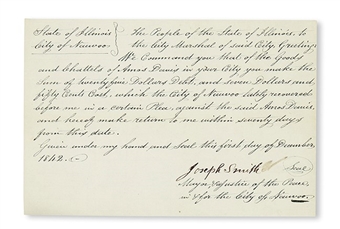 State of Illinois } The People of the State of Illinois, to
City of Nauvoo } the City Marshal of said City, Greeting
We Command you that of the Goods
and Chattels of Amos Davis in your City you make the
Sum of twenty five Dollars Debt, and seven Dollars and
fifty Cents Cost, which the City of Nauvoo lately recovered
before me in a certain Plea, against the said Amos Davis,
and hereof make return to me within seventy days
from this date.
Given under my hand and seal this first day of December
1842.
Joseph Smith Seal
Mayor & Justice of the Peace
in & for the City of Nauvoo.